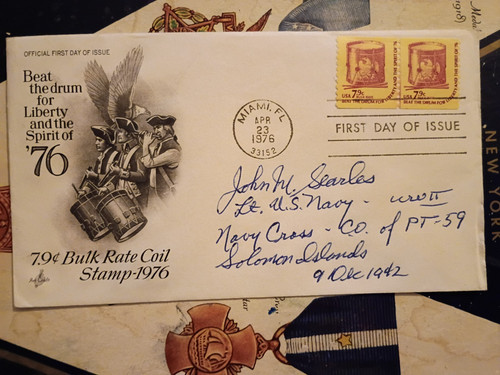 OFFICIAL FIRST DAY OF ISSUE
Beat
the drum
for
Liberty
and the
Spirit of
'76
7.9¢ Bulk Rate Coil
Stamp-1976
USA 7.9c
BEAT THE DRUM FOR
LIBERTY AND THE SPIRIT OF '76
USA 7.9c
BEAT THE DRUM FOR
LIBERTY AND THE SPIRIT OF '76
MIAMI, FL
APR
23
1976
33152
FIRST DAY OF ISSUE
John M. Searles
Lt. U.S. Navy - WWII
Navy Cross - CO. of PT-59
Solomon Islands
9 Dec 1942
NEW YORK